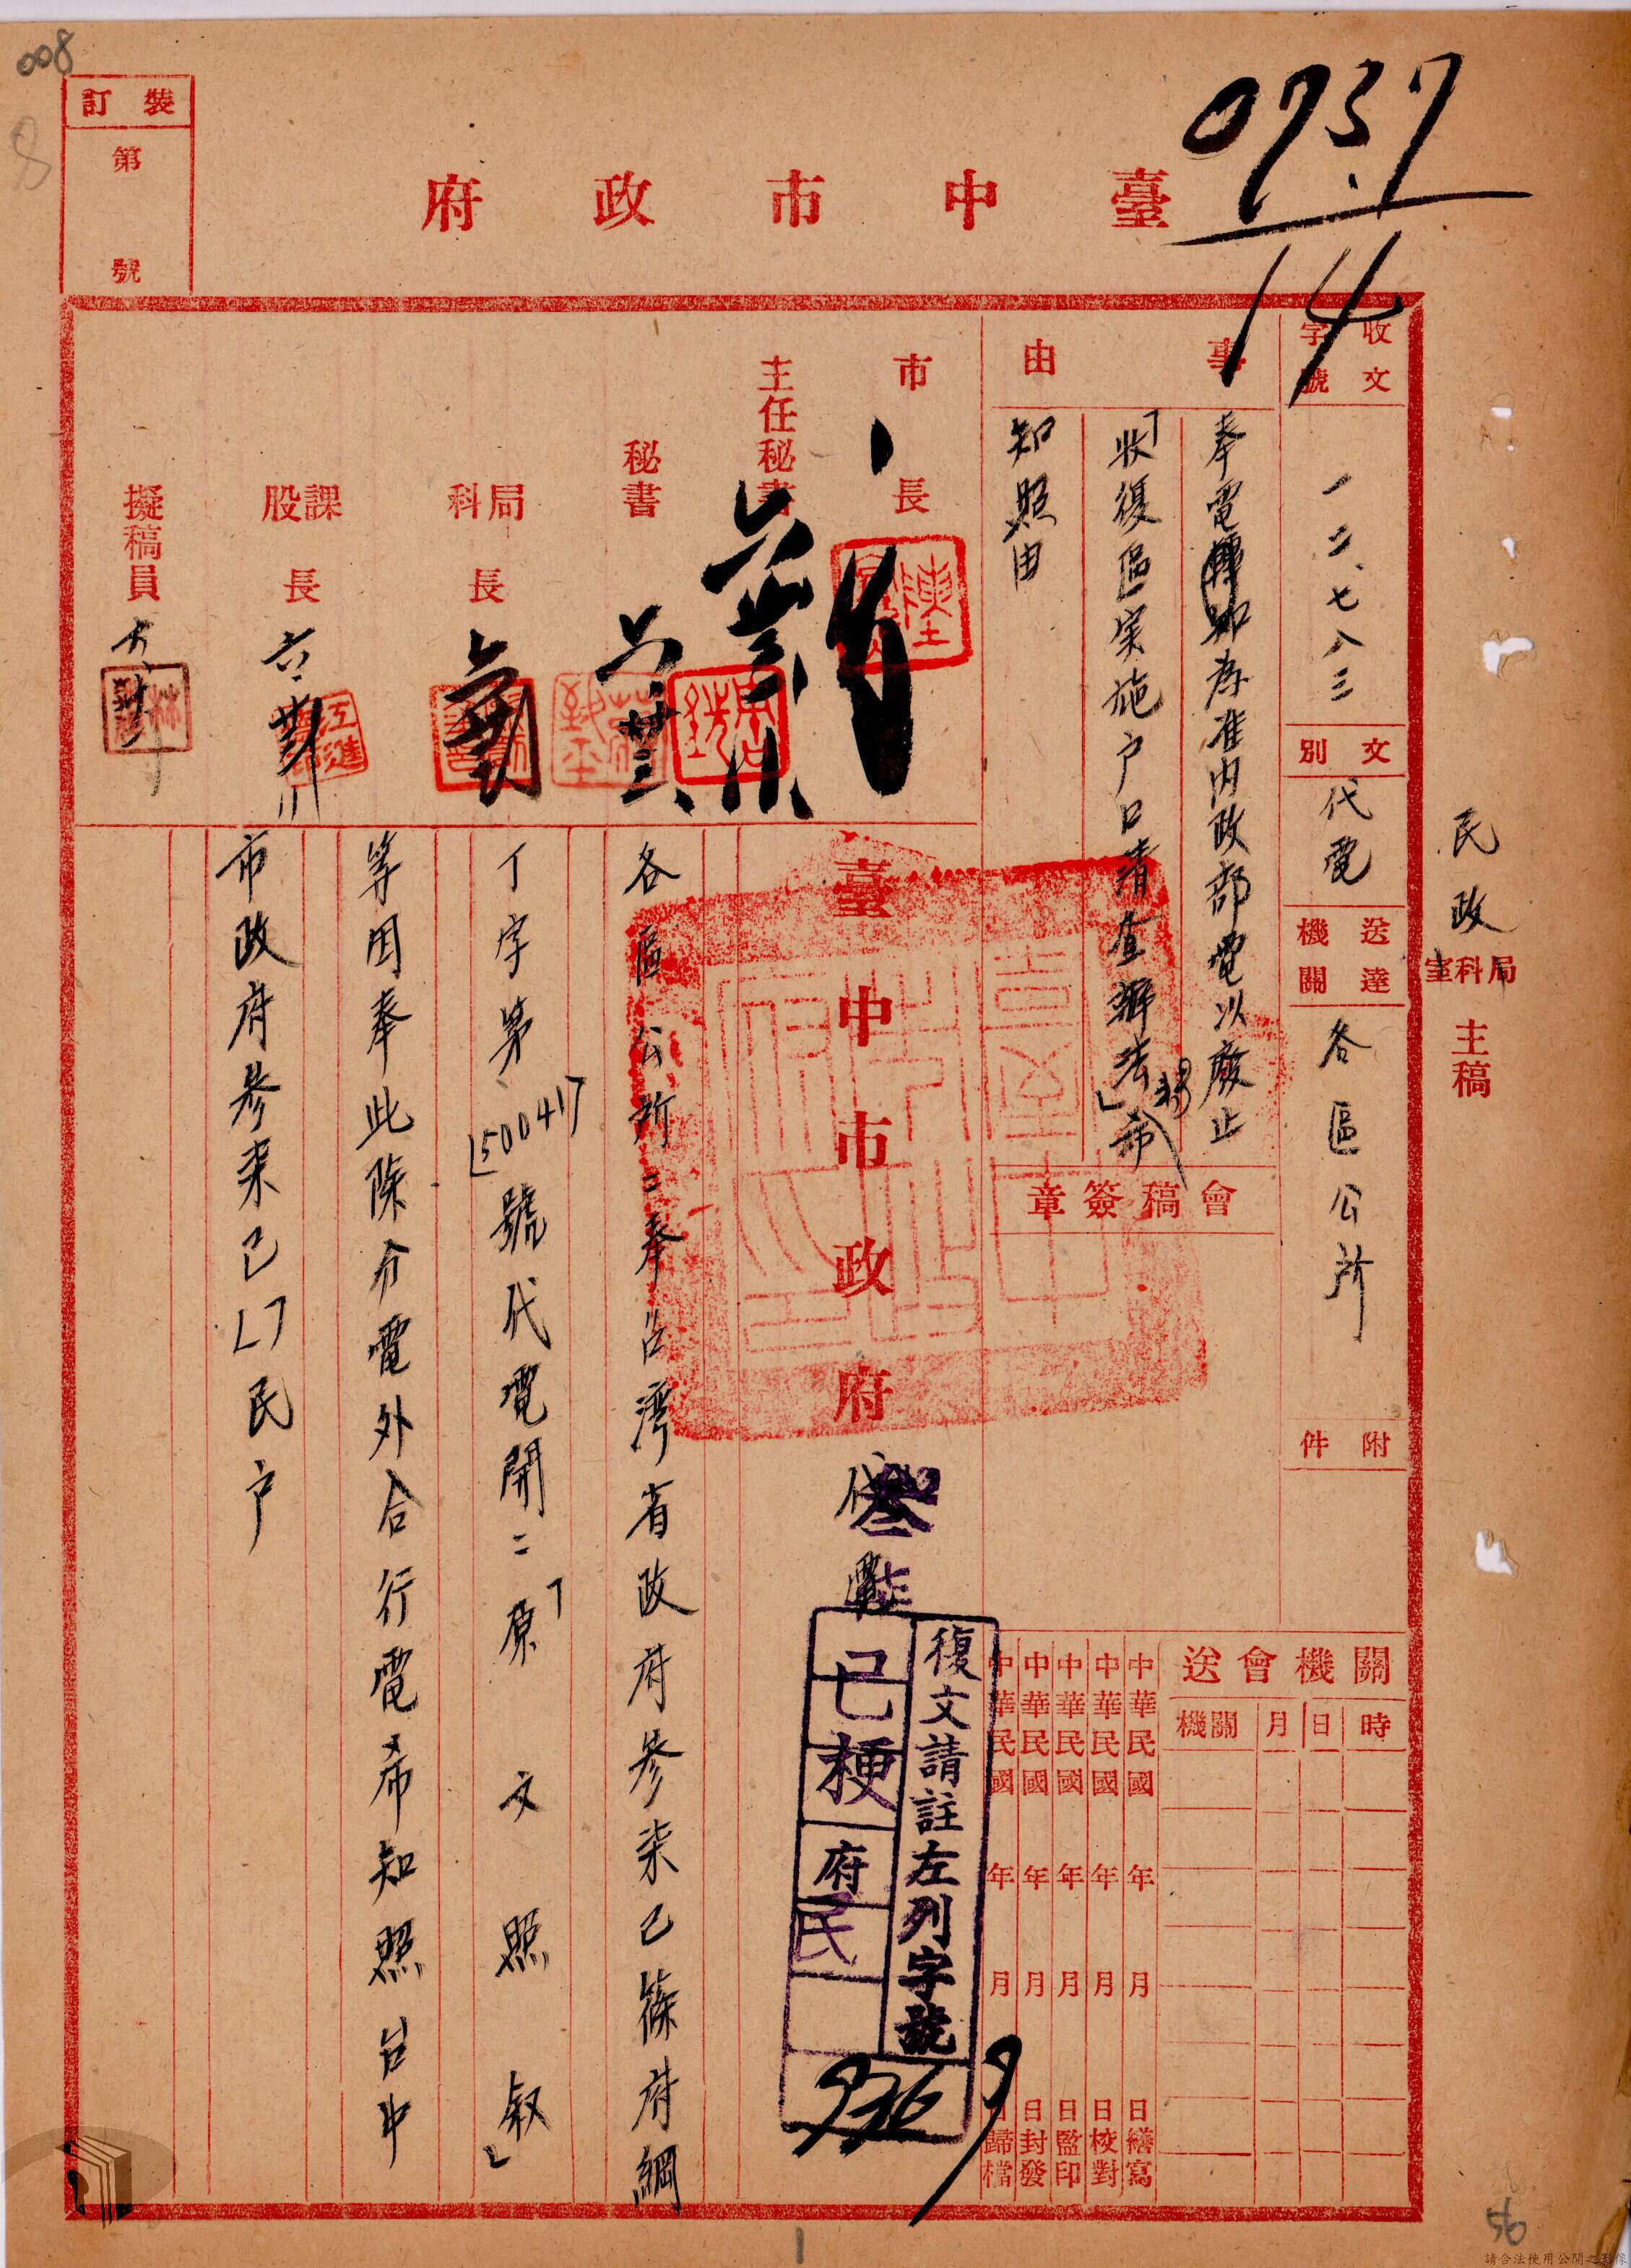 008
8
裝訂
第
號
0737
14
臺中市政府
民政
局科室
主稿
收文字號
一二、七八三
文別
代電
送達機關
各區公所
附件
事由
奉電轉知為准內政部電以廢止
「收復區実施户口清查辦法」希
知照由
會稿簽章
關機會送
時
日
月
機關
中華民國 年 月 日繕寫
中華民國 年 月 日校對
中華民國 年 月 日監印
中華民國 年 月 日封發
中華民國 年 月 日歸檔
市長
主任秘書
秘書
局科長
課股長
擬稿員
臺中市政府
代電
叁柒
復文請註左列字號
已梗
府
民
各區公所:奉台灣省政府參柒已篠府綱
丁字第500417號代電開:「原文照叙」
等因奉此除分電外合行電希知照台中
市政府參柒已 民户
1
56
請合法使用公開之影像